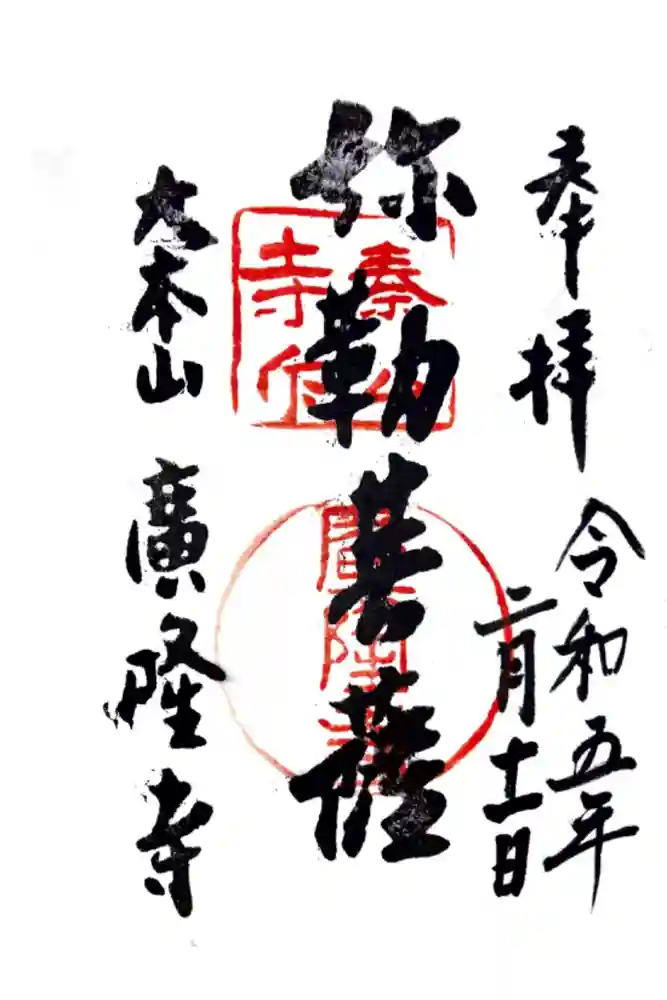 奉拝
令和五年
二月十一日
弥勒菩薩
大本山
廣隆寺